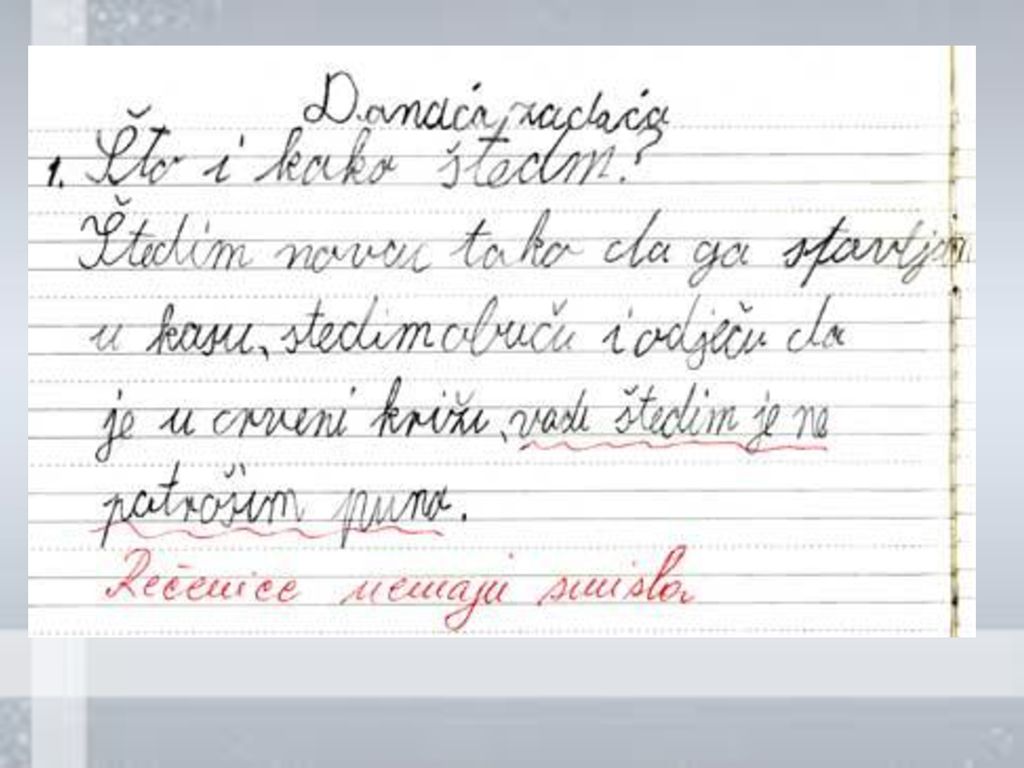 Domaća zadaća
1. Što i kako štedim?
Štedim novac tako da ga stavljam
u kasu, stedim obuču i odječu da
je u crveni križi, vadu štedim je ne
patrošim puno.
Rečenice nemaju smisla